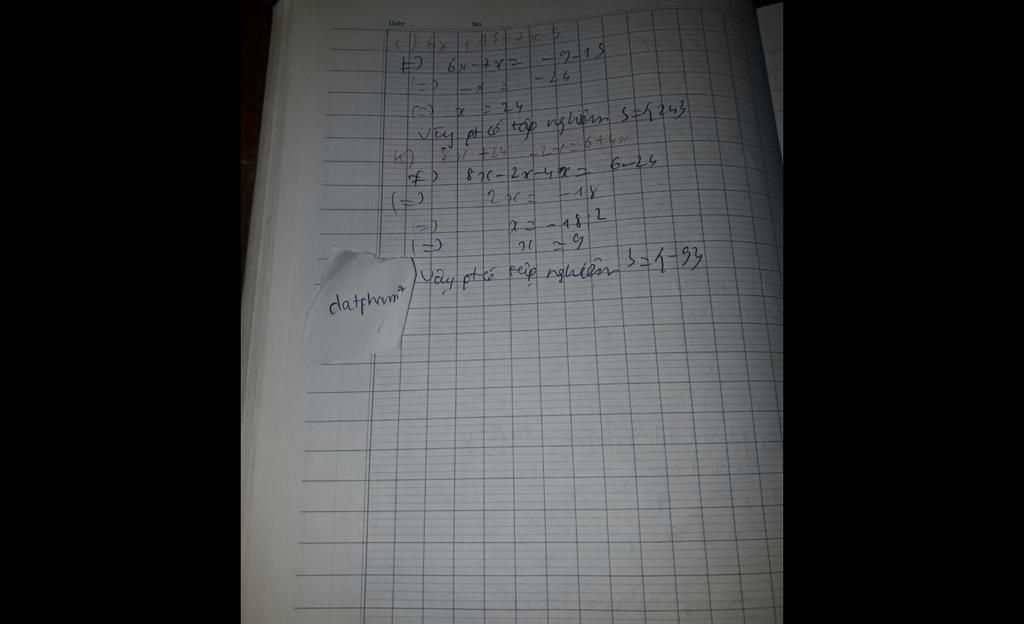 Date No
6x - 7x = -9-15
(=) -x = -24
(=) x = 24
Vậy pt có tập nghiệm S={24}
8x + 24 - 2x = 6+4x
8x-2x-4x = 6-24
(=) 2x = -18
(=) x = -18 2
(=) x = 9
Vậy pt có tập nghiệm S={-9}
datpham